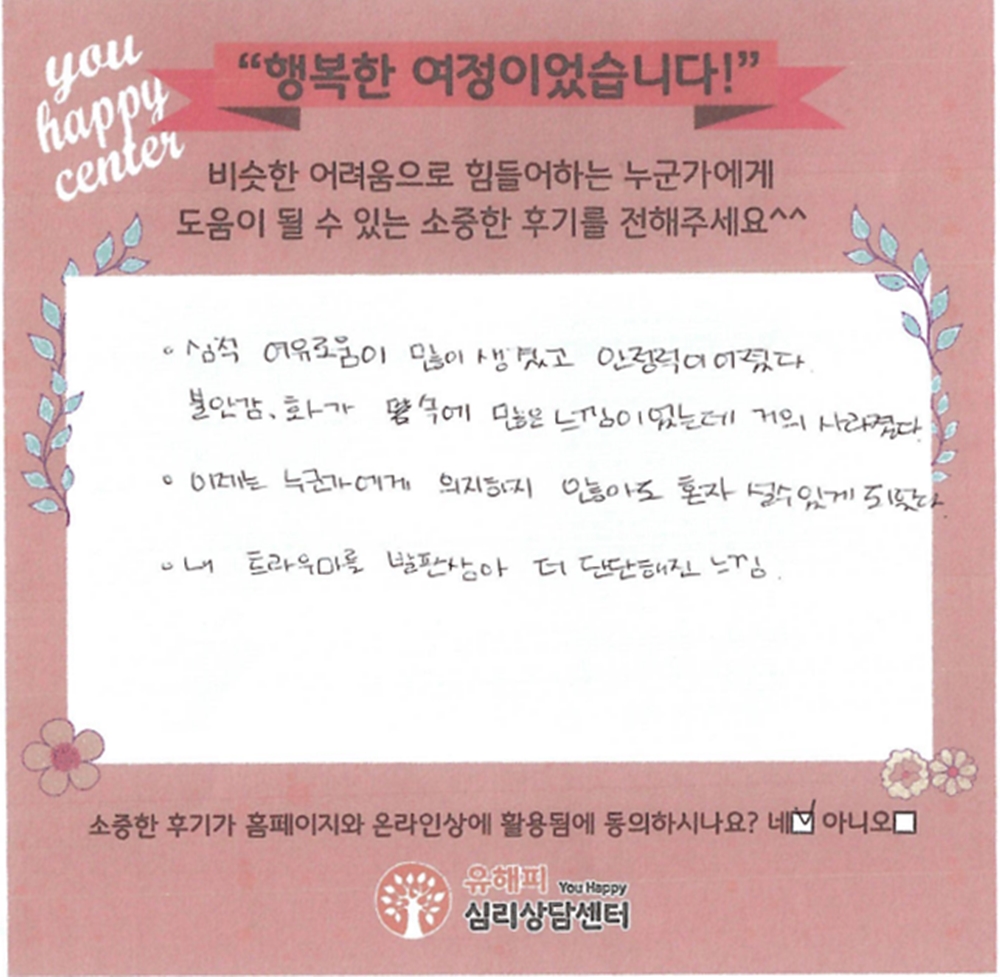 you
happy
center
“행복한 여정이었습니다!”
비슷한 어려움으로 힘들어하는 누군가에게
도움이 될 수 있는 소중한 후기를 전해주세요^^
◦ 심적 여유로움이 많이 생겼고 안정력이
불안감, 화가 속에 많은 느낌이었는데 거의 사라졌다.
◦ 이제는 누군가에게 의지하지 않아도 혼자 설수있게 되었다.
◦ 내 트라우마를 발판삼아 더 단단해진 느낌.
소중한 후기가 홈페이지와 온라인상에 활용됨에 동의하시나요? 네☑ 아니오☐
유해피 You Happy
심리상담센터